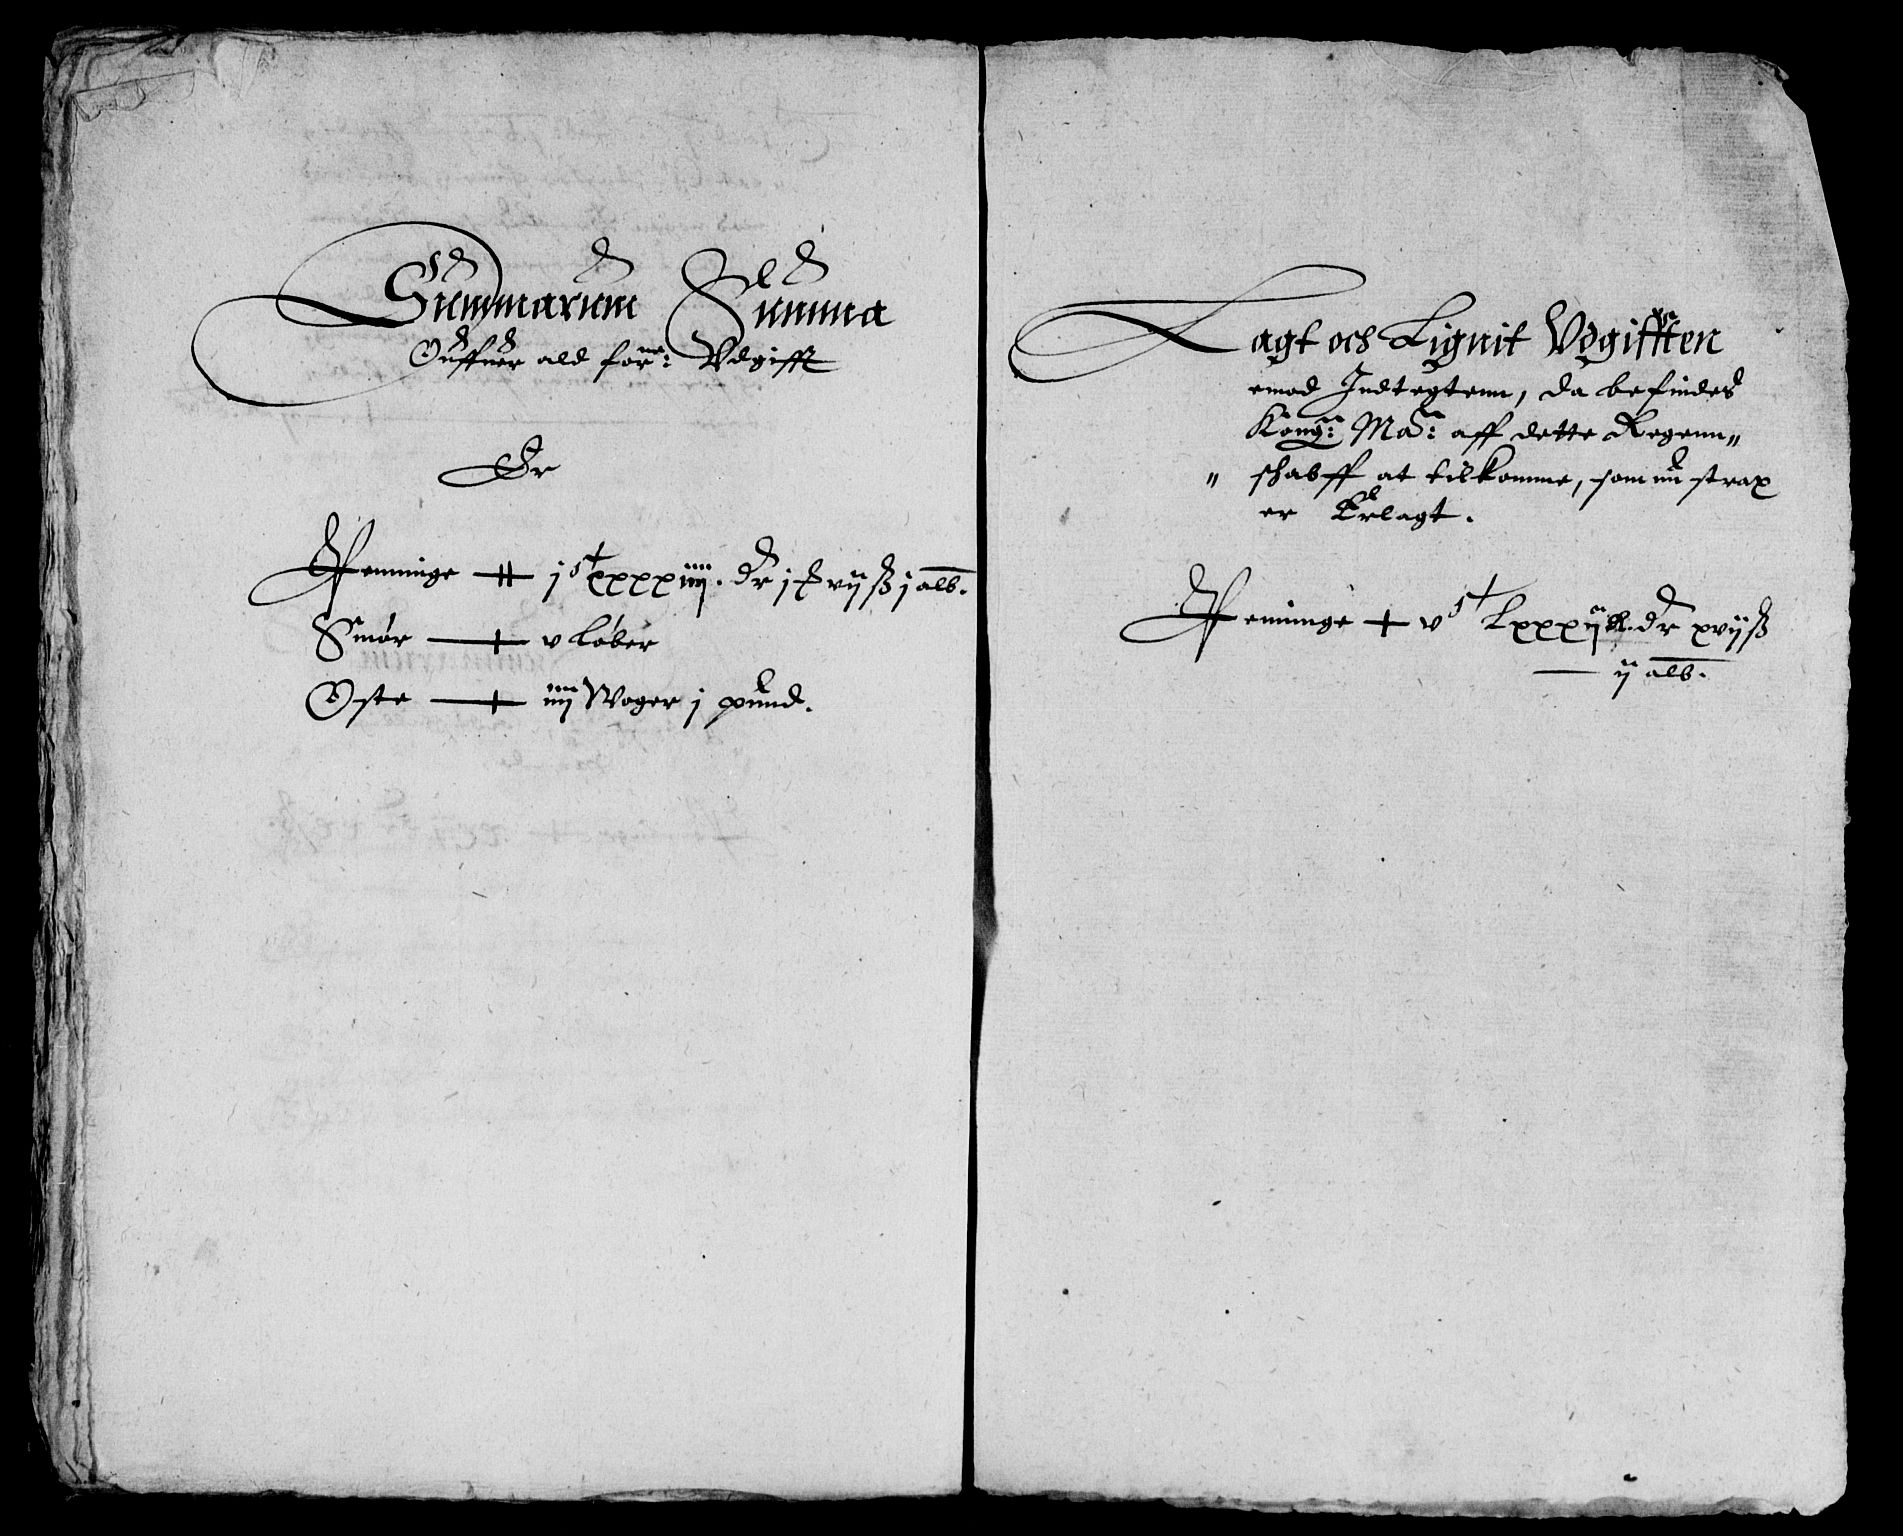 Summarum Summa
Ouffuer ald forne: Vdgifft
Er
Penninge — jc xxxxiiij. dr j ₰ vij ß j alb.
Smør — v Løber
Oste — iiij Woger j pund.
Lagt och Lignit Vdgifften
emod Indtegtenn, da befindes
Kong: Ma: aff dette Regenn„
„ schabff at tilkomme, som nu strax
er Erlagt.
Penninge — vc Lxxxij dr xvij ß
— ij alb.